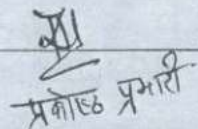 प्रकोष्ठ प्रभारी